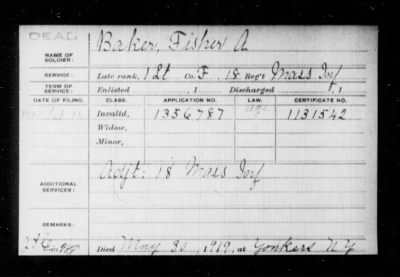 DEAD
NAME OF SOLDIER: Baker, Fisher A
SERVICE: Late rank, 1 Lt Co. F, 18 Reg't Mass. Inf
TERM OF SERVICE: Enlisted , 1 Discharged , 1
DATE OF FILING. CLASS. APPLICATION NO. LAW. CERTIFICATE NO.
Invalid, 1356787 age 1131542
Widow,
Minor,
ADDITIONAL SERVICES: Adjt: 18 Mass Inf
REMARKS:
Died May 30, 1919, at Yonkers N.Y.